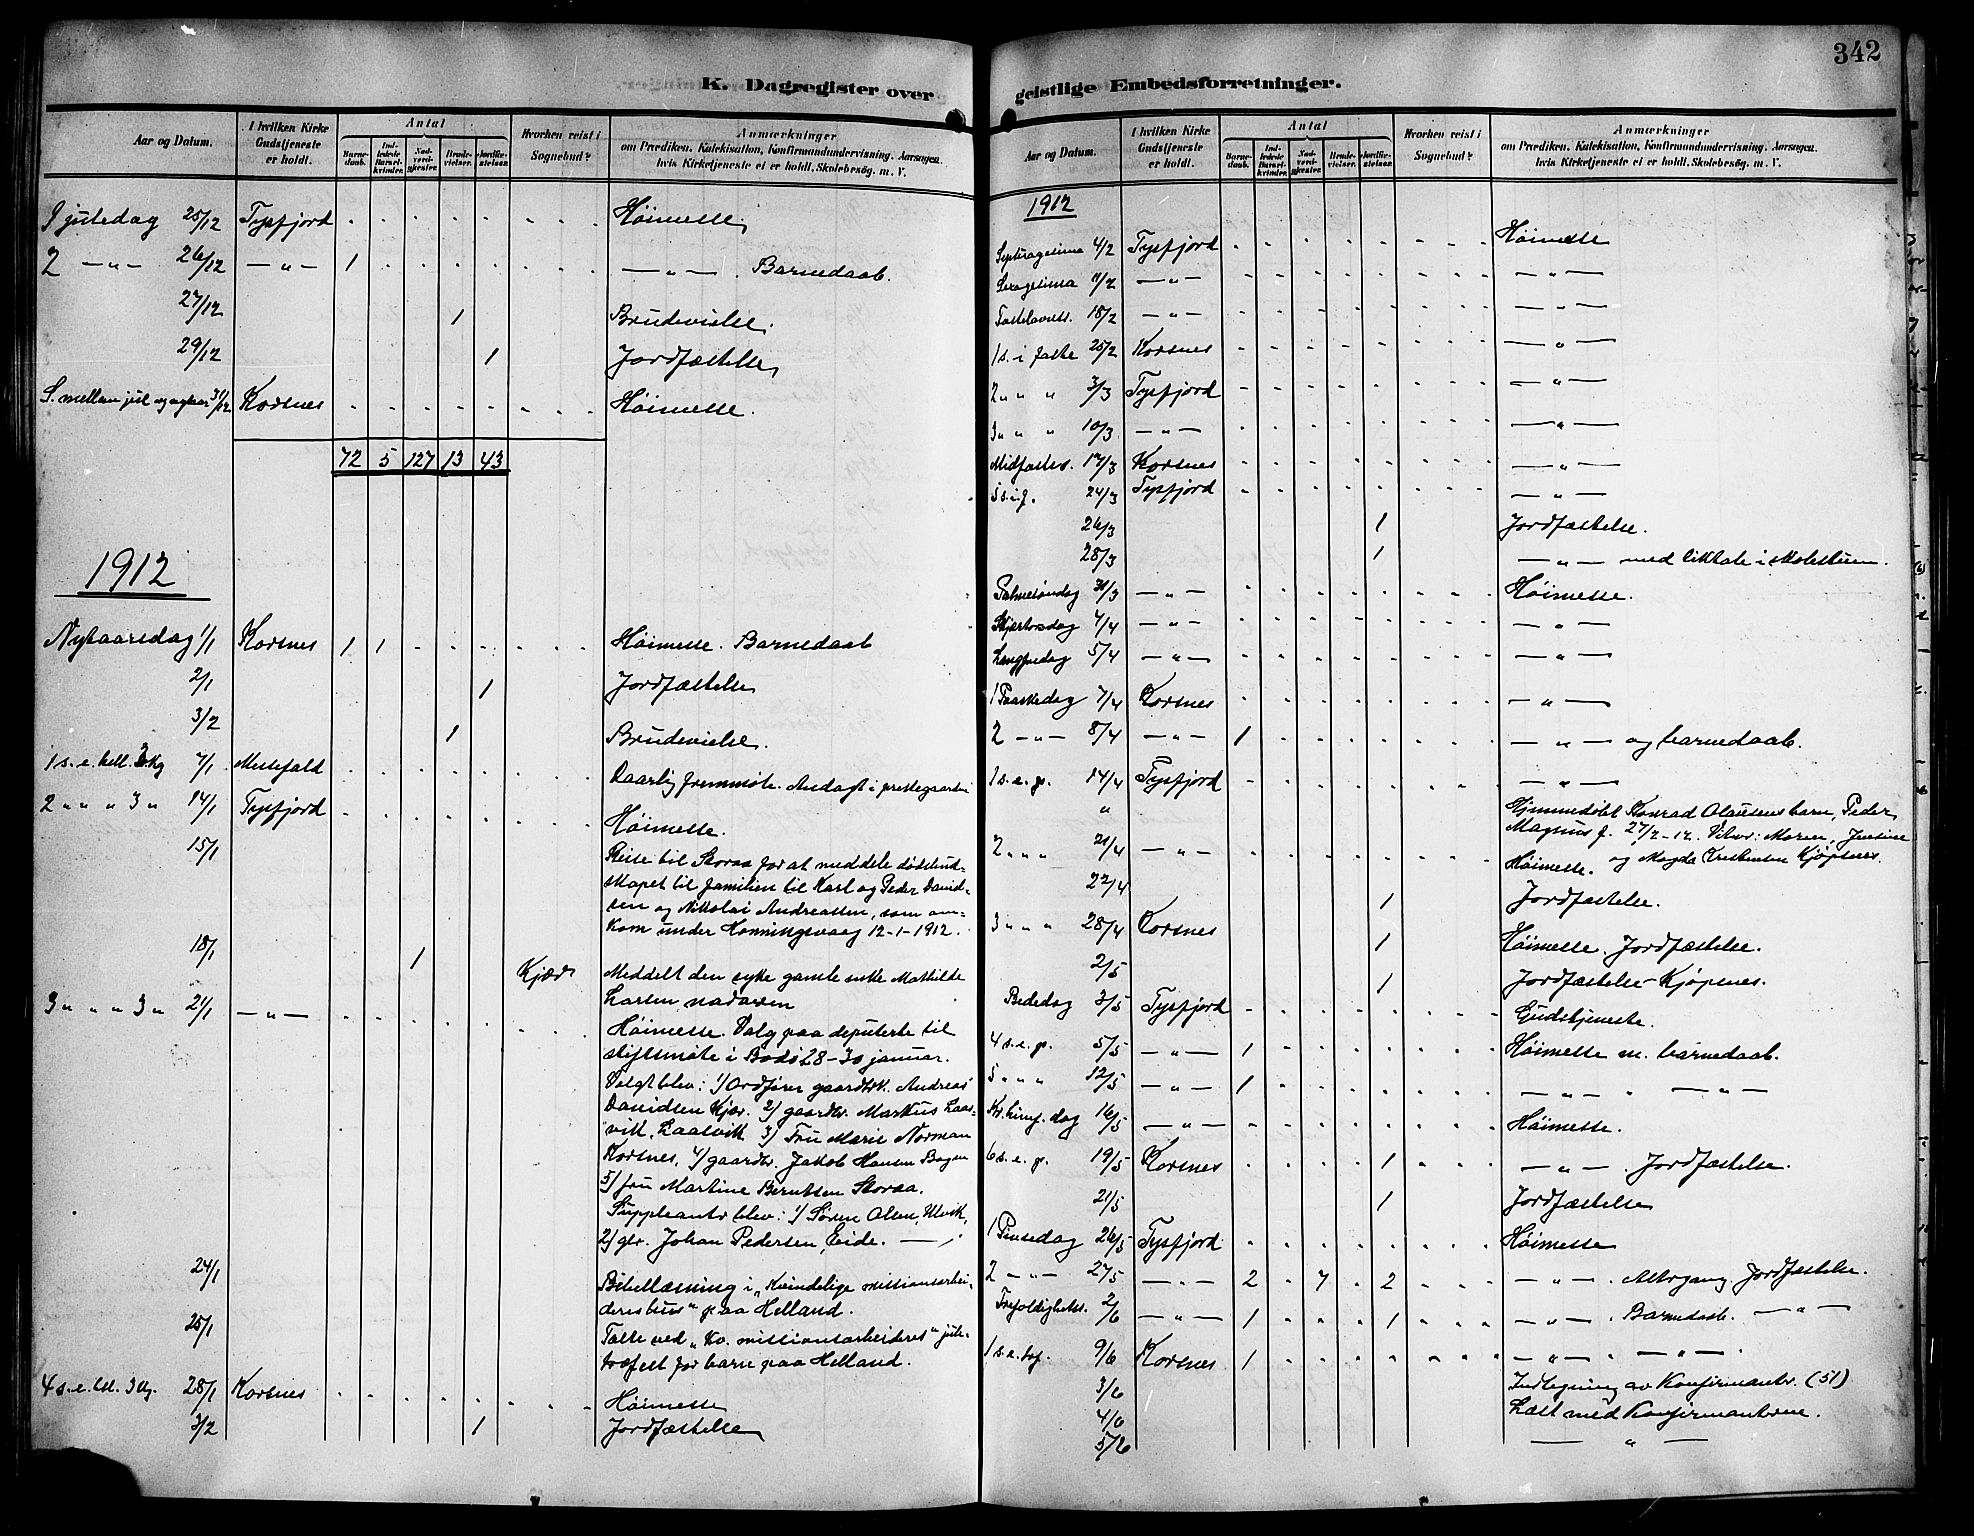 342
K. Dagregister over
geistlige Embedsforretninger.
Aar og Datum.
I hvilken Kirke Gudstjeneste er holdt.
Antal
Barnedaab.
Indledede Barselkvinder.
Nadverdgjester.
Brudevielser.
Jordfæstelser.
Hvorhen reist i Sognebud?
Anmærkninger
om Prædiken, Katekisation, Konfirmandundervisning, Aarsagen,
hvis Kirketjeneste ei er holdt, Skolebesøg, m. V.
I juledag 25/12 Tysfjord Höimesse.
2 —"— 26/12 —"— 1 —"— . Barnedaab.
27/12 1 Brudevielse.
29/12 1 Jordfæstelse
S. mellem jul og nytaar 31/12 Korsnes Höimesse.
72 5 127 13 43
1912
Nytaarsdag 1/1 Korsnes 1 1 Höimesse. Barnedaab
2/1 1 Jordfæstelse
3/2 1 Brudevielse.
1 s. e. hell. 3 kg 7/1 Messefald Daarlig fremmöte. Andagt i prestegaarden
2 " " " 3 " 14/1 Tysfjord Höimesse.
15/1 Reise til Storaa for at meddele dödsbud-
skapet til familien til Karl og Peder David-
sen og Nikolai Andreassen, som om-
kom under Honningsvaag 12-1-1912.
18/1 1 Kjær Meddelt den syke gamle enke Mathilde
Larsen nadveren
3 " " " 3 " 21/1 —"— Höimesse. Valg paa deputerte til
stiftsmöte i Bodö 28-30 januar.
Valgt blev: 1) Ordförer gaardbr. Andreas
Davidsen Kjær. 2) gaardbr. Markus Laas-
vik, Laasvik 3) Fru Marie Norman
Korsnes, 4) gaardbr. Jakob Hansen Bogen
5) fru Martine Berntsen Storaa.
Suppleanter blev: 1) Sören Olsen, Ulvik,
2) gbr. Johan Pedersen, Eide. —
24/1 Bibellæsning i "Kvindelige missionsarbei-
deres hus" paa Helland.
25/1 Talte ved "Kv. missionsarbeideres" jule-
træfest for barn paa Helland.
4 s. e. hl. 3 kg. 28/1 Korsnes Höimesse
3/2 1 Jordfæstelse
Aar og Datum.
I hvilken Kirke Gudstjeneste er holdt.
Antal
Barnedaab.
Indledede Barselkvinder.
Nadverdgjester.
Brudevielser.
Jordfæstelser.
Hvorhen reist i Sognebud?
Anmærkninger
om Prædiken, Katekisation, Konfirmandundervisning, Aarsagen,
hvis Kirketjeneste ei er holdt, Skolebesøg, m. V.
1912
Septuagesima 4/2 Tysfjord Höimesse
Sexagesima 11/2 —"— —"—
Fastelavnss. 18/2 —"— —"—
1 s. i faste 25/2 Korsnes —"—
2 " " " 3/3 Tysfjord —"—
3 " " " 10/3 —"— —"—
Midfastes. 17/3 Korsnes —"—
5 s. i f. 24/3 Tysfjord —"—
26/3 1 Jordfæstelse.
28/3 1 —"— med liktale i
Palmesöndag 31/3 —"— Höimesse.
Skjærtorsdag 4/4 —"— —"—
Langfredag 5/4 —"— —"—
1 Paaskedag 7/4 Korsnes —"—
2 —"— 8/4 —"— 1 —"— og barnedaab.
1 s. e. p. 14/4 Tysfjord —"—
" Hjemmedöbt Konrad Olausens barn, Peder
Magnus f. 27/2-12. Vitner: Maren, Jensine
og Magda Kristensen Kjöpsnes.
2 " " " 21/4 —"— Höimesse.
22/4 1 Jordfæstelse.
3 " " " 28/4 Korsnes 1 Höimesse. Jordfæstelse.
2/5 1 Jordfæstelse - Kjöpsnes.
Bededag 3/5 Tysfjord Gudstjeneste.
4 s. e. p. 5/5 —"— 1 Höimesse m. barnedaab.
5 " " " 12/5 —"— 1 —"— " —"—
Kr. himf. dag 16/5 —"— Höimesse.
6 s. e. p. 19/5 Korsnes 1 —"— . Jordfæstelse.
21/5 1 Jordfæstelse
1 Pinsedag 26/5 Tysfjord Höimesse
2 —"— 27/5 —"— 2 7 2 —"— . Altergang. Jordfæstelse.
Trefoldighets. 2/6 —"— 1 1 —"— . Barnedaab. —"—
1 s. e. tref. 9/6 Korsnes 1 —"— . —"— .
3/6 Indtegning av Konfirmanter. (51)
4/6 Læst med Konfirmanterne.
5/6 —"—